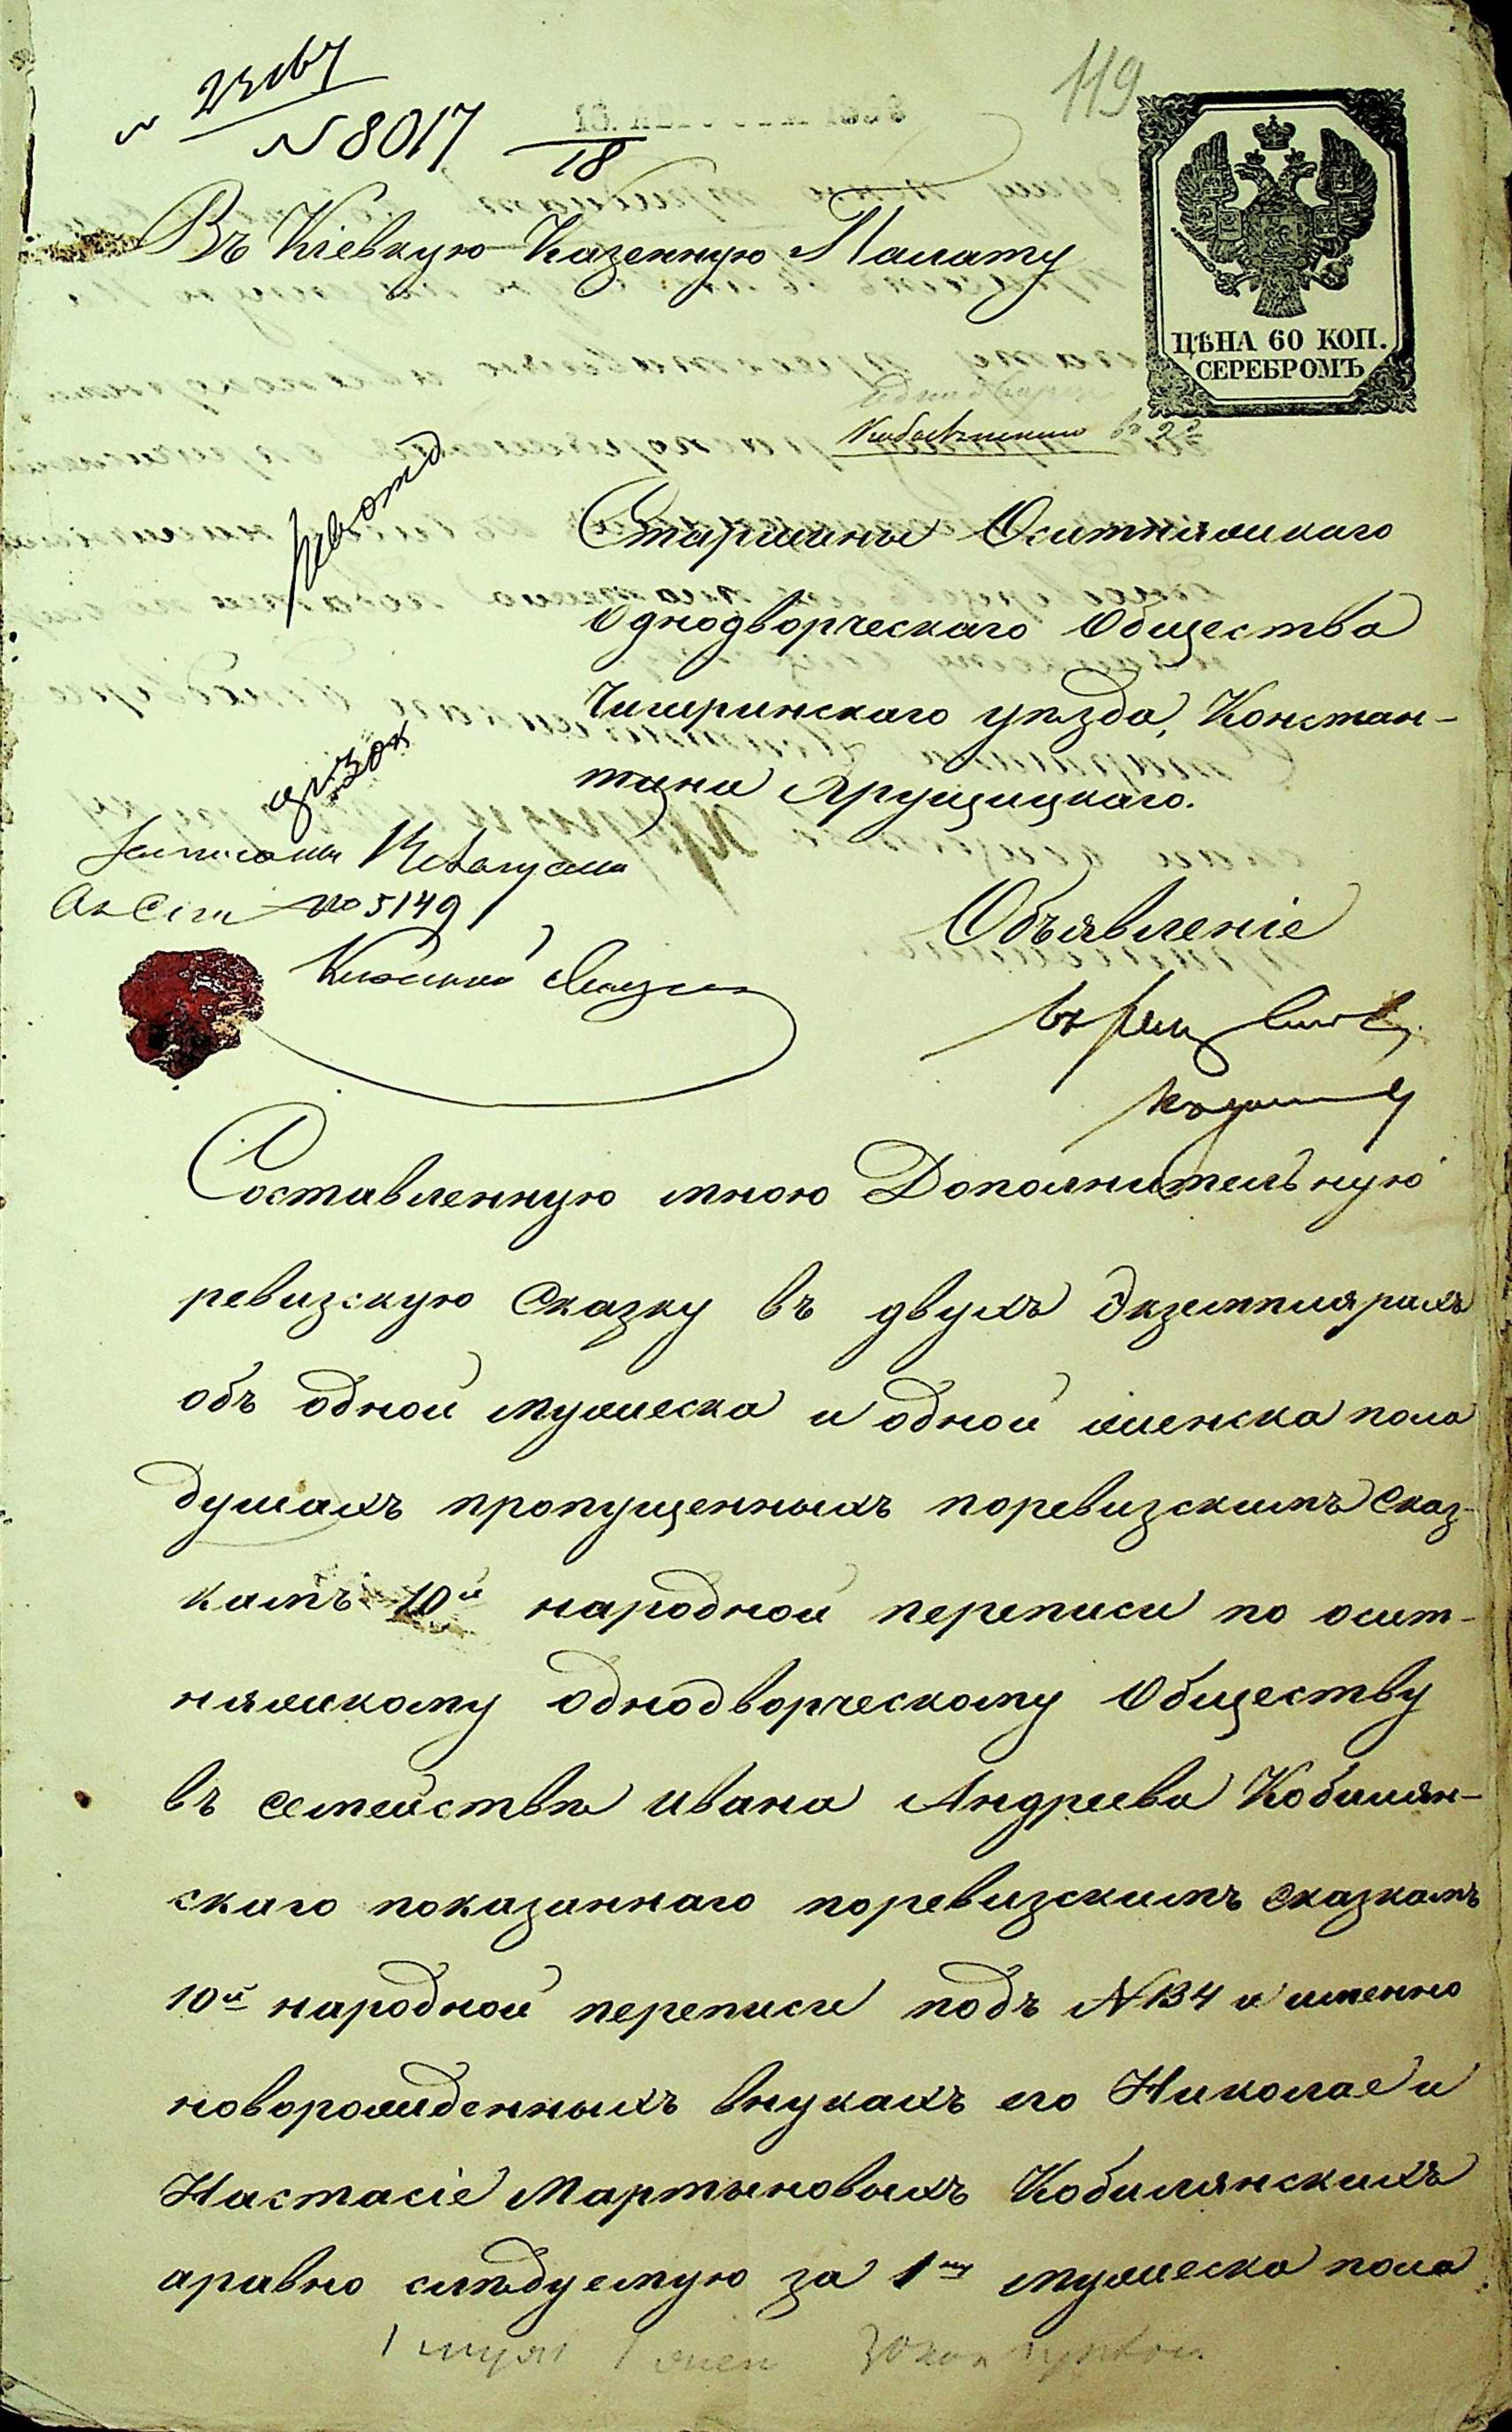 119
№ 8017
18
Въ Кіевкую Казенную Палату
ЦѢНА 60 КОП.
СЕРЕБРОМЪ
Старшины Оситняжскаго
Однодворческаго Общества
Чигиринскаго уѣзда, Констан-
тина Ярущицкаго.
№ 5149
Объявленіе
Составленную мною Дополнительную
ревизскую Сказку въ двухъ Экземплярахъ
объ одной мужеска и одной женска пола
душахъ пропущенныхъ поревизскимъ Сказ-
камъ 10й народной переписи по осит-
няжскому Однодворческому Обществу
въ Семействѣ Ивана Андреева Кобилян-
скаго показаннаго поревизскимъ Сказкамъ
10й народной переписи подъ №134 и именно
новорожденныхъ внукахъ его Николае и
Настасіе Мартыновыхъ Кобилянскихъ
аравно слѣдуемую за 1ну мужеска пола
1 муж 1 жен